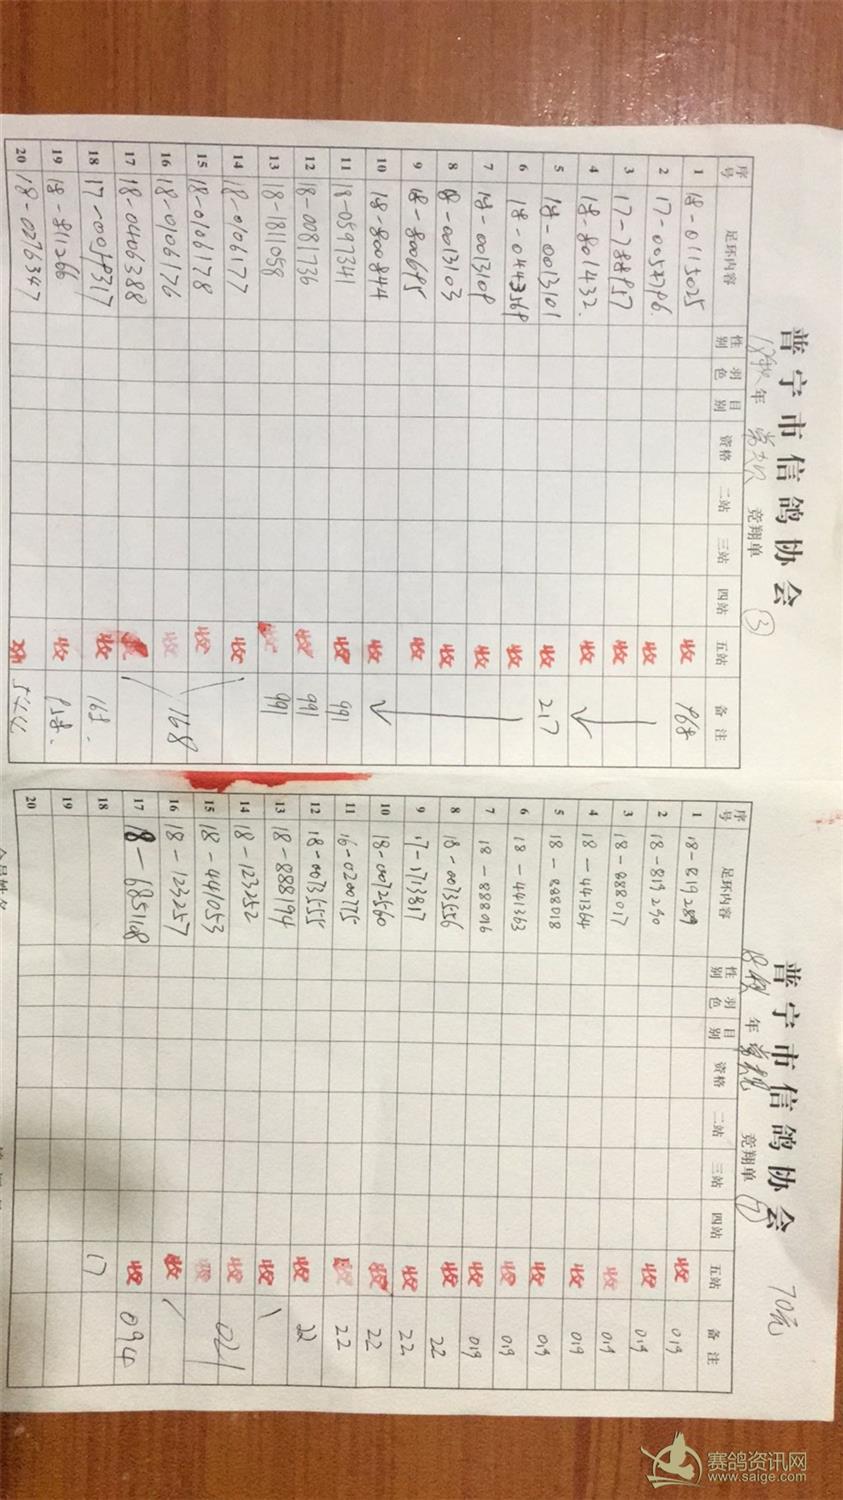 普宁市信鸽协会 ③
18秋 年 常规 竞翔单
序号 足环内容 性别 羽色 目别 资格 二站 三站 四站 五站 备注
1 18-0115025 收 968
2 收
3 收
4 18-801432. 收
5 18-0013101 收 217
6 收
7 收
8 18-0013103 收
9 收
10 18-800844 收
11 18-0597341 收 991
12 18-0081736 收 991
13 18-1811058 收 991
14 18-0106177 收
15 18-0106178 收
16 18-0106176 收 168
17 18-0406388 收
18 收 168.
19 18-811266 收
20 18-0276347 收
普宁市信鸽协会 70元
18秋 年 常规 竞翔单
序号 足环内容 性别 羽色 目别 资格 二站 三站 四站 五站 备注
1 18-819289 收 019
2 18-819290 收 019
3 18-888017 收 019
4 18-441364 收 019
5 18-888018 收 019
6 18-441363 收 019
7 18-888016 收 019
8 18-0073556 收 22
9 17-1713817 收 22
10 18-0072560 收 22
11 16-0200775 收 22
12 18-0073555 收 22
13 18-888194 收
14 18-123252 收
15 18-441053 收 021
16 18-123257 收
17 18-685168 收 094
18 17
19
20
赛鸽资讯网
www.saige.com